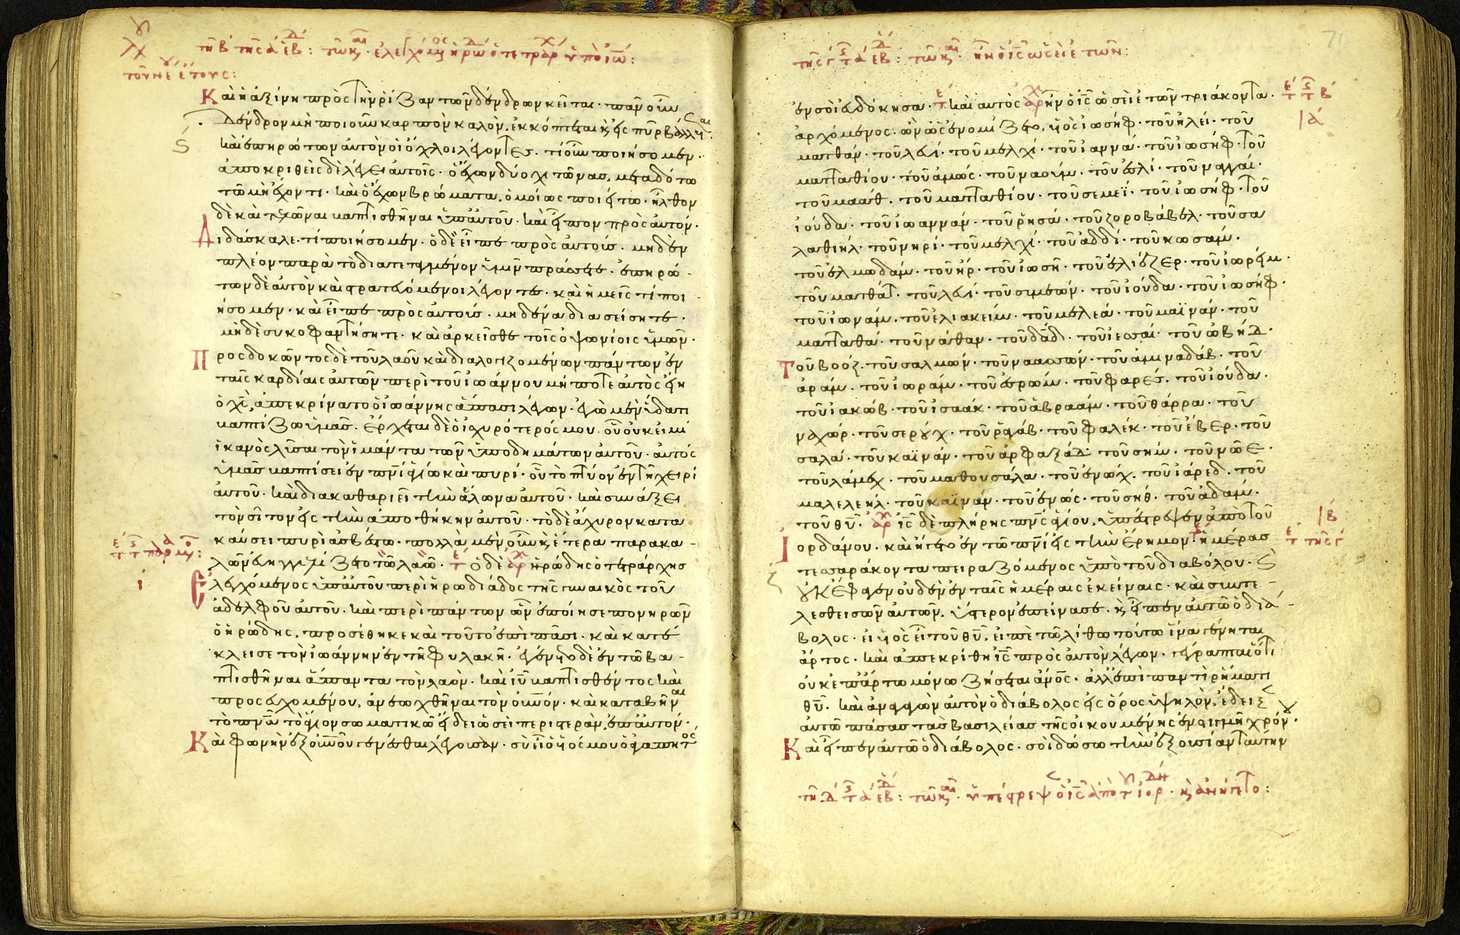 Καὶ ἡ ἀξίνη πρὸς τὴν ρίζαν τῶν δένδρων κεῖται· πᾶν οὖν
δένδρον μὴ ποιοῦν καρπὸν καλὸν, ἐκκόπτεται καὶ εἰς πῦρ βάλλεται·
καὶ ἐπηρώτων αὐτὸν οἱ ὄχλοι λέγοντες. τί οὖν ποιήσομεν·
ἀποκριθεὶς δὲ λέγει αὐτοῖς· ὁ ἔχων δύο χιτῶνας, μεταδότω
τῶ μὴ ἔχοντι· καὶ ὁ ἔχων βρώματα, ὁμοίως ποιείτω· ἦλθον
δὲ καὶ τελῶναι βαπτισθῆναι ὑπ' αὐτοῦ· καὶ εἶπον πρὸς αὐτόν·
Διδάσκαλε· τί ποιήσομεν· ὁ δὲ εἶπε πρὸς αὐτούς· μηδὲν
πλέον παρὰ τὸ διατεταγμένον ὑμῖν πράσσετε· ἐπηρώ-
των δὲ αὐτὸν καὶ στρατευόμενοι λέγοντες· καὶ ἡμεῖς τί ποι-
ήσομεν· καὶ εἶπε πρὸς αὐτούς· μηδένα διασείσητε·
μηδὲ συκοφαντήσητε· καὶ ἀρκεῖσθε τοῖς ὀψωνίοις ὑμῶν·
Προσδοκῶντος δὲ τοῦ λαοῦ καὶ διαλογιζομένων πάντων ἐν
ταῖς καρδίαις αὐτῶν περὶ τοῦ ἰωάννου μήποτε αὐτὸς εἴη
ὁ χς, ἀπεκρίνατο ὁ ἰωάννης ἅπασι λέγων· ἐγὼ μὲν ὕδατι
βαπτίζω ὑμᾶς· ἔρχεται δὲ ὁ ἰσχυρότερός μου· οὗ οὐκ εἰμὶ
ἱκανὸς λῦσαι τὸν ἱμάντα τῶν ὑποδημάτων αὐτοῦ· αὐτὸς
ὑμᾶς βαπτίσει ἐν πνι ἁγίω καὶ πυρί· οὗ τὸ πτύον ἐν τῆ χειρὶ
αὐτοῦ· καὶ διακαθαριεῖ τὴν ἅλωνα αὐτοῦ· καὶ συνάξει
τὸν σῖτον εἰς τὴν ἀποθήκην αὐτοῦ· τὸ δὲ ἄχυρον κατα
καύσει πυρὶ ἀσβέστω· πολλὰ μὲν οὖν καὶ ἕτερα παρακα-
λῶν εὐηγγελίζετο τὸν λαόν· ὁ δὲ ἡρώδης ὁ τετράρχης
Ἐλεγχόμενος ὑπ' αὐτοῦ περὶ ἡρωδιάδος τῆς γυναικὸς τοῦ
ἀδελφοῦ αὐτοῦ· καὶ περὶ πάντων ὧν ἐποίησε πονηρῶν
ὁ ἡρώδης, προσέθηκε καὶ τοῦτο ἐπὶ πᾶσι· καὶ κατέ
κλεισε τὸν ἰωάννην ἐν τῆ φυλακῆ· ἐγένετο δὲ ἐν τῶ βα-
πτισθῆναι ἅπαντα τὸν λαόν· καὶ ιυ βαπτισθέντος καὶ
προσευχομένου, ἀνεωχθῆναι τὸν οὐνόν· καὶ καταβῆναι
τὸ πνα τὸ ἅγιον σωματικῶ εἴδει ὡσεὶ περιστερὰν ἐπ' αὐτόν·
Καὶ φωνὴν ἐξ οὐνοῦ γενέσθαι λέγουσαν· σὺ εἶ ὁ υἱός μου ὁ ἀγαπητὸς
ἐν σοὶ εὐδόκησα· καὶ αὐτὸς ἦν ὁ ις ὡσεὶ ἐτῶν τριάκοντα·
ἀρχόμενος· ὢν ὡς ἐνομίζετο, υἱὸς ἰωσήφ· τοῦ ἠλεί· τοῦ
ματθάν· τοῦ λευί· τοῦ μελχί· τοῦ ἰαννά· τοῦ ἰωσήφ· τοῦ
ματταθίου· τοῦ ἀμώς· τοῦ ναούμ· τοῦ ἐσλί· τοῦ ναγγαί·
τοῦ μαάθ· τοῦ ματταθίου· τοῦ σεμεΐ· τοῦ ἰωσήφ· τοῦ
ἰούδα· τοῦ ἰωαννάν· τοῦ ῥησά· τοῦ ζοροβάβελ· τοῦ σα
λαθιήλ· τοῦ νηρί· τοῦ μελχί· τοῦ ἀδδί· τοῦ κωσάμ·
τοῦ ἐλμωδάμ· τοῦ ἤρ· τοῦ ἰωσῆ· τοῦ ἐλιέζερ· τοῦ ἰωρείμ·
τοῦ ματθάτ· τοῦ λευί· τοῦ συμεών· τοῦ ἰούδα· τοῦ ἰωσήφ·
τοῦ ἰωνάμ· τοῦ ἐλιακείμ· τοῦ μελεά· τοῦ μαϊνάν· τοῦ
ματταθά· τοῦ νάθαν· τοῦ δαδ· τοῦ ἰεσσαί· τοῦ ὠβήδ·
Τοῦ βοόζ· τοῦ σαλμών· τοῦ ναασσών· τοῦ ἀμιναδάβ· τοῦ
ἀράμ· τοῦ ἰωράμ· τοῦ ἐσρώμ· τοῦ φαρές· τοῦ ἰούδα·
τοῦ ἰακώβ· τοῦ ἰσαάκ· τοῦ ἀβραάμ· τοῦ θάρρα· τοῦ
ναχώρ· τοῦ σερούχ· τοῦ ῥαγάβ· τοῦ φαλεκ· τοῦ ἔβερ· τοῦ
σαλά· τοῦ καϊνάν· τοῦ ἀρφαξάδ· τοῦ σήμ· τοῦ νῶε·
τοῦ λάμεχ· τοῦ μαθουσάλα· τοῦ ἐνώχ· τοῦ ἰάρεδ· τοῦ
μαλελεήλ· τοῦ καϊνάν· τοῦ ἐνώς· τοῦ σήθ· τοῦ ἀδάμ·
τοῦ θυ· ις δὲ πλήρης πνς ἁγίου, ὑπέστρεψεν ἀπὸ τοῦ
Ἰορδάνου· καὶ ἤγετο ἐν τῶ πνι εἰς τὴν ἔρημον ἡμέρας
τεσσαράκοντα πειραζόμενος ὑπὸ τοῦ διαβόλου·
οὐκ ἔφαγεν οὐδὲν ἐν ταῖς ἡμέραις ἐκείναις· καὶ συντε-
λεσθεισῶν αὐτῶν, ὕστερον ἐπείνασε· καὶ εἶπεν αὐτῶ ὁ διά-
βολος· εἰ υἱὸς εἶ τοῦ θυ, εἰπὲ τῶ λίθω τούτω ἵνα γένηται
ἄρτος· καὶ ἀπεκρίθη ις πρὸς αὐτὸν λέγων· γέγραπται ὅτι
οὐκ ἐπ' ἄρτω μόνω ζήσεται ἄνος· ἀλλ' ἐπὶ παντὶ ῥήματι
θυ· καὶ ἀναγαγὼν αὐτὸν ὁ διάβολος εἰς ὄρος ὑψηλὸν, ἔδειξεν
αὐτῶ πάσας τὰς βασιλείας τῆς οἰκουμένης ἐν στιγμῆ χρόνου·
Καὶ εἶπεν αὐτῶ ὁ διάβολος· σοὶ δώσω τὴν ἐξουσίαν ταύτην